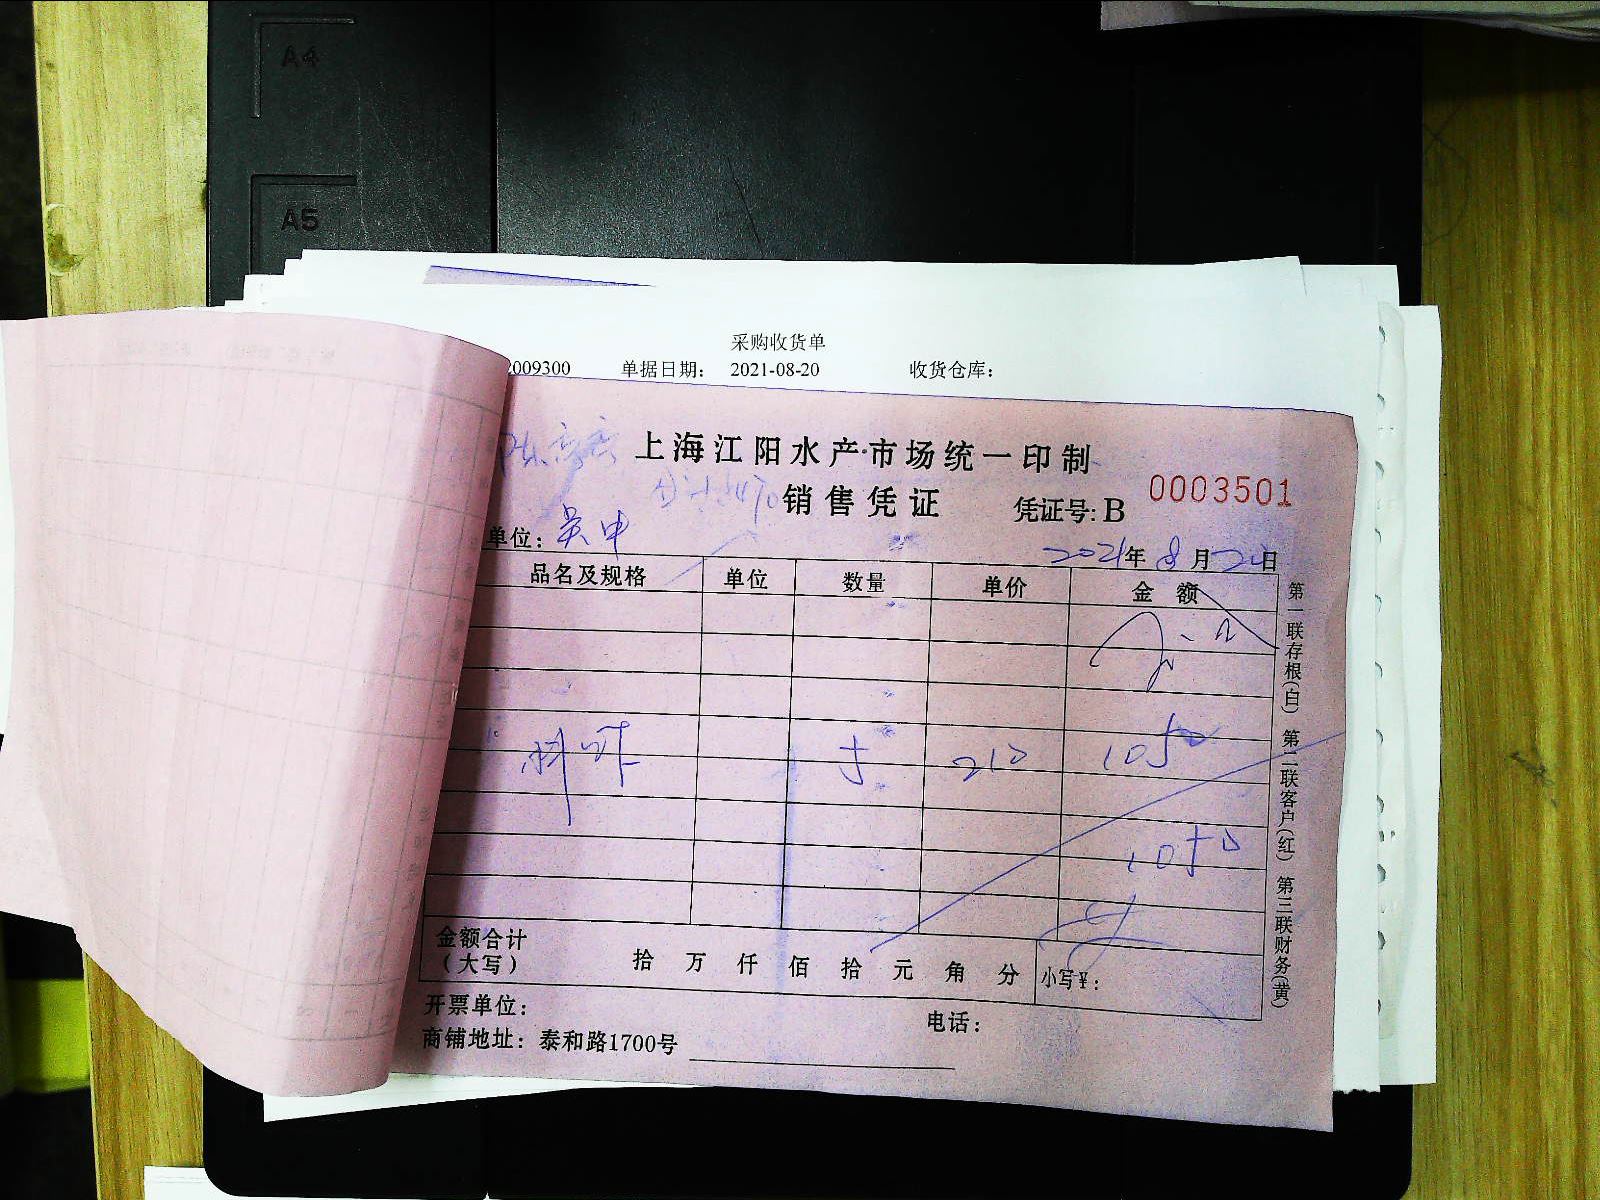 A4
A5
采购收货单
2009300 单据日期： 2021-08-20 收货仓库：
上海江阳水产·市场统一印制
销售凭证 凭证号：B 0003501
单位：吴中
2021年8月20日
品名及规格 单位 数量 单价 金额
5 210 1050
1050
金额合计
（大写） 拾 万 仟 佰 拾 元 角 分 小写¥：
开票单位： 电话：
商铺地址：泰和路1700号
第一联存根(白) 第二联客户(红) 第三联财务(黄)